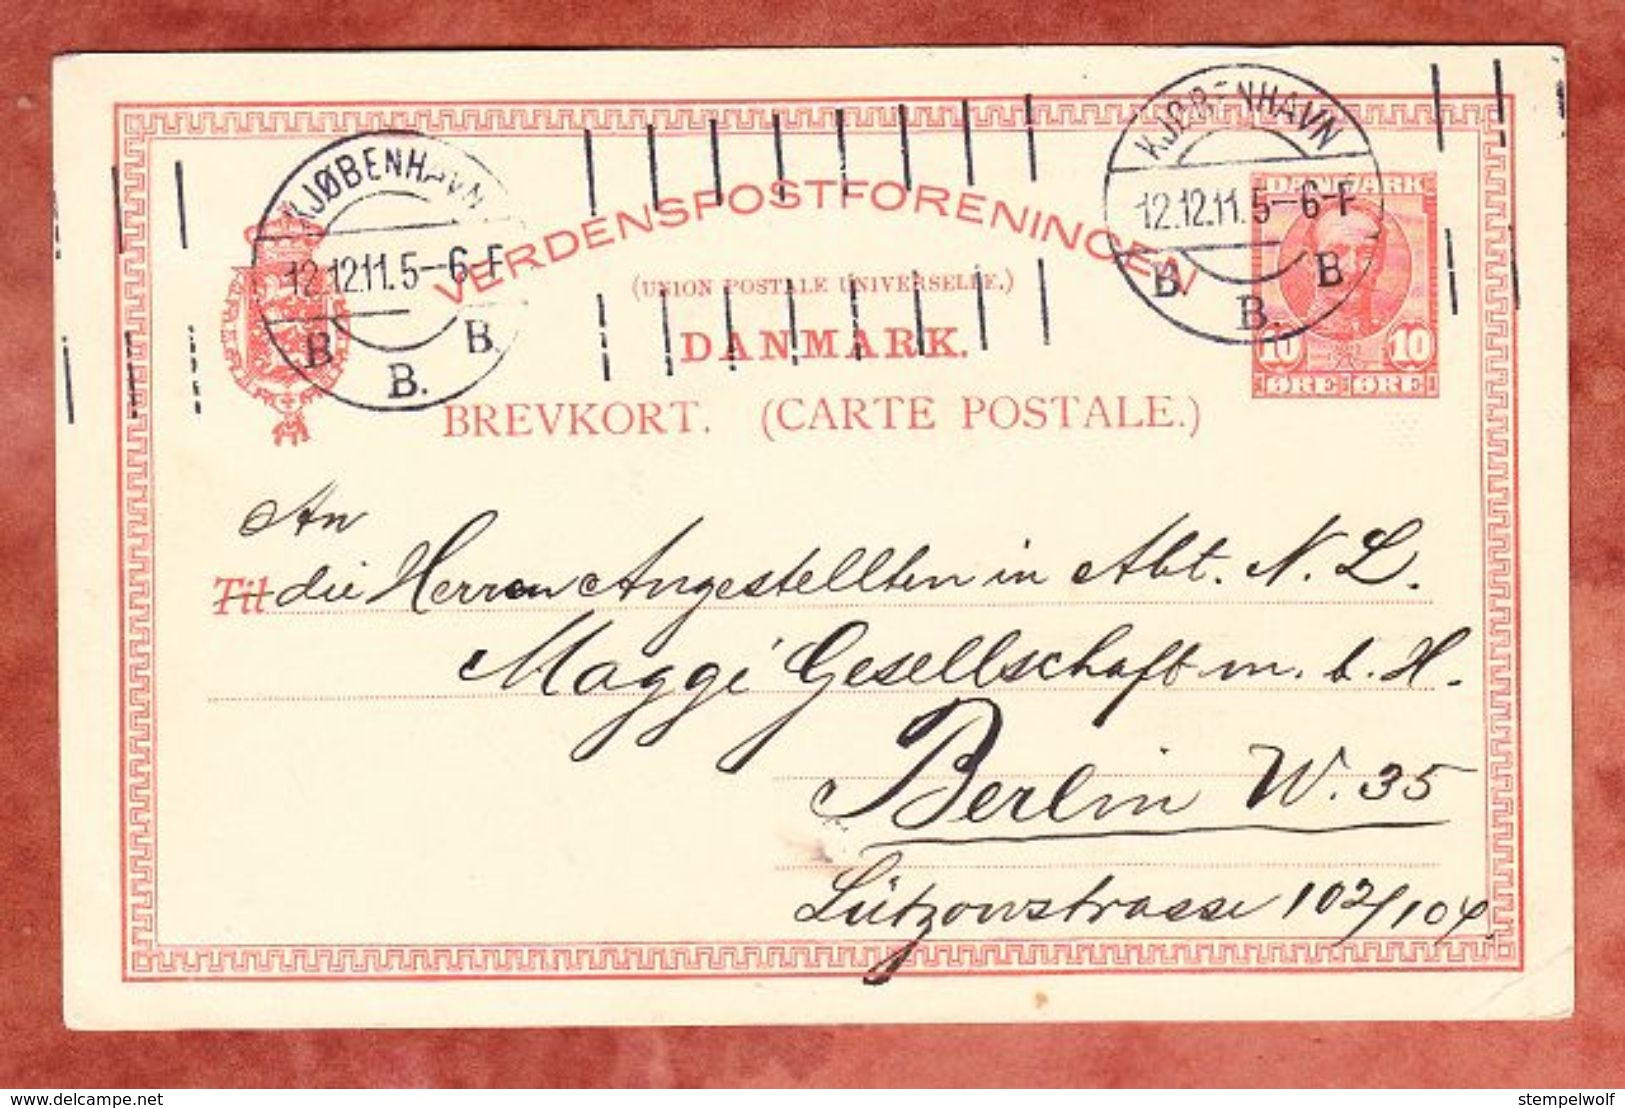 KJØBENHAVN
12.12.11. 5-6 F
B. B. B.
KJØBENHAVN
12.12.11. 5-6 F
B. B. B.
VERDENSPOSTFORENINGEN
(UNION POSTALE UNIVERSELLE.)
DANMARK.
BREVKORT. (CARTE POSTALE.)
DANMARK
10 10
ØRE ØRE
An
Til die Herren Angestellten in Abt. N. L.
Maggi Gesellschaft m. b. H.
Berlin W. 35
Lützowstrasse 102/104.
www.delcampe.net
stempelwolf